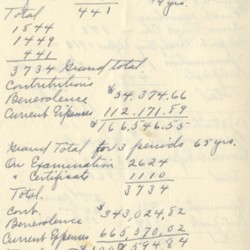 Total 441 4 yrs.
1844
1449
441
3734 Grand total.
Contributions
Benevolence $54,374.66
Current Expenses 112,171.89
$166,546.55
Grand Total for 3 periods 65 yrs.
On Examination 2624
" Certificate 1110
Total. 3734
Cont.
Benevolence $343,024.82
Current Expenses 665,570.02
594.84